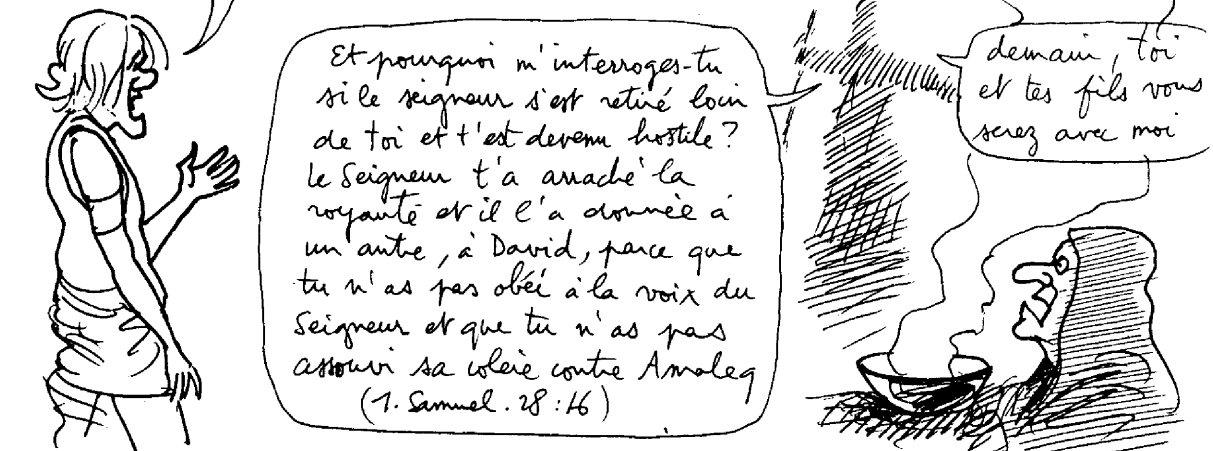 Et pourquoi m'interroges-tu
si le seigneur s'est retiré loin
de toi et t'est devenu hostile?
Le Seigneur t'a arraché la
royauté et il l'a donnée à
un autre, à David, parce que
tu n'as pas obéi à la voix du
Seigneur et que tu n'as pas
assouvi sa colère contre Amaleq
(1. Samuel. 28:16)
demain, toi
et tes fils vous
serez avec moi